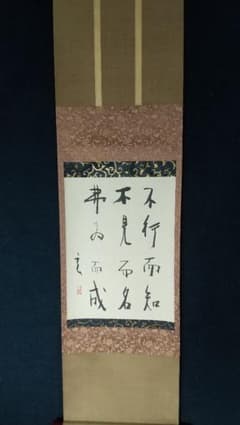 不行而知
不見而名
弗為而成